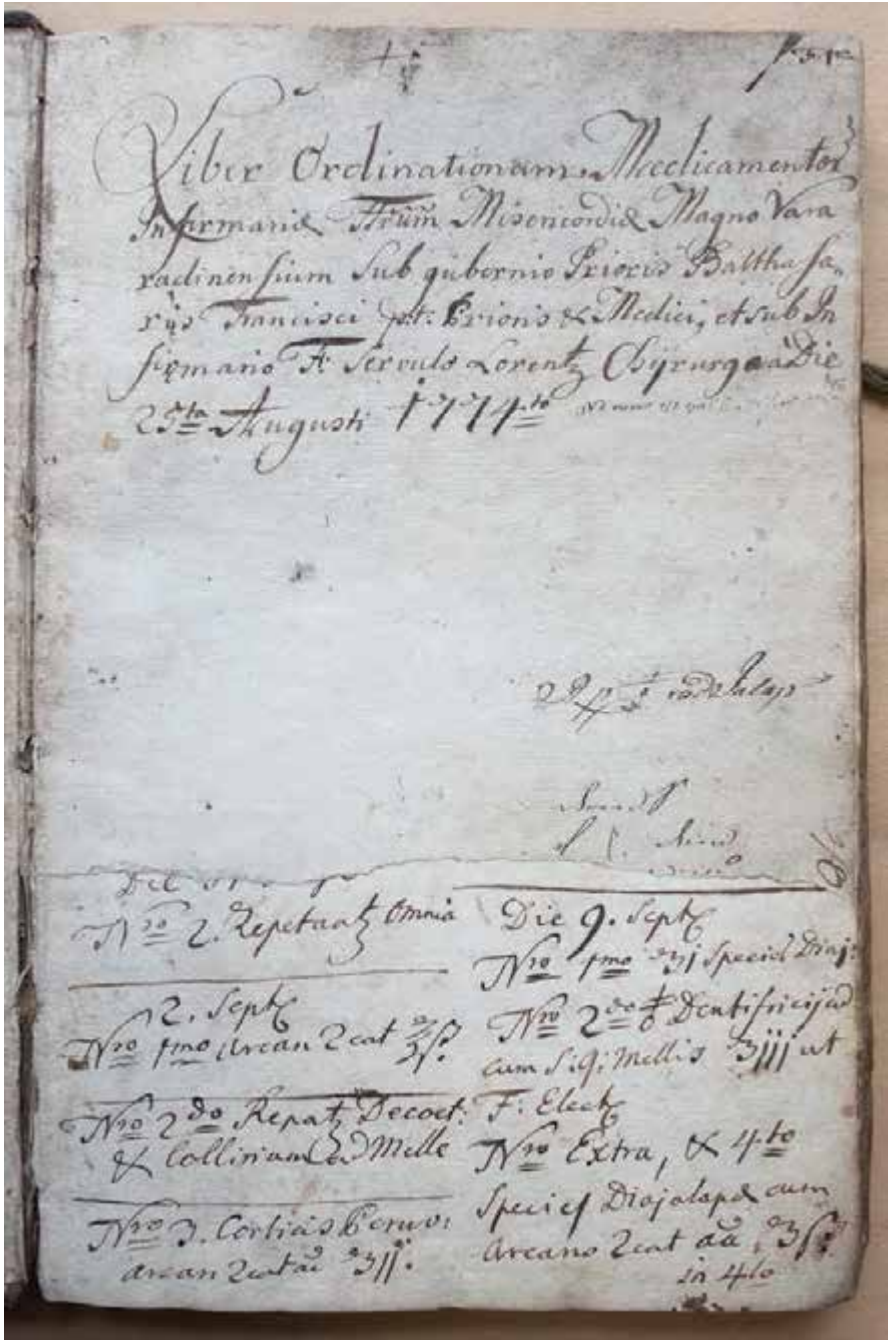 Liber Ordinationum Medicamentor
Infirmariæ Frum Misericordiæ Magno Vara
radinensium Sub gubernio Prioris Baltha sa
rijs Francisci p.t. Prioris & Medici, et sub In
firmario Fr. Servulo Lorentz Chyrurgo a Die
25ta Augusti 1774to
rad Jalap
Nro 2. Repetantz Omnia
2. Septz
Nro 1mo Arcan 2cat ʒß.
Nro 2do Repatz Decoct:
& Collirium Melle
Nro 3. Corticis Peruv:
arcan 2cat aa ʒjj.
Die 9. Septz
Nro 1mo ʒj Speciei Diaj:
Nro 2do Dentifricij
cum S: q: Mellis ʒjjj ut
F: Electz
Nro Extra, & 4to
Speciej Diajalapæ cum
Arcano 2cat aa, ʒß.
in 4to